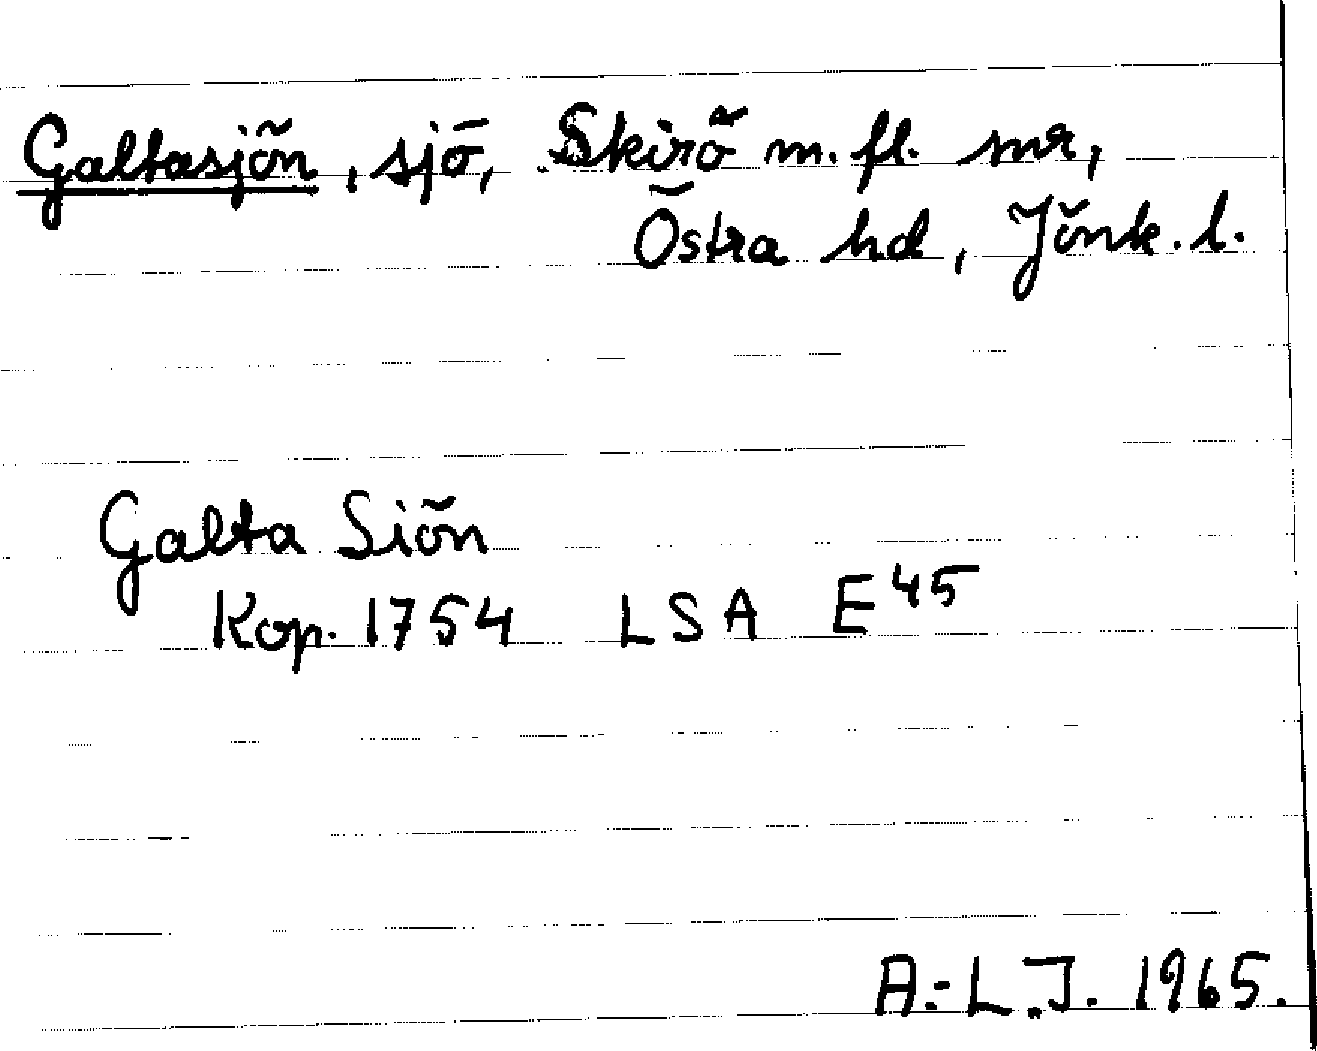 Galtasjön, sjö, Skirö m. fl. snr,
Östra hd, Jönk. l.
Galta Siön
Kop. 1754 LSA E45
A.-L. J. 1965.